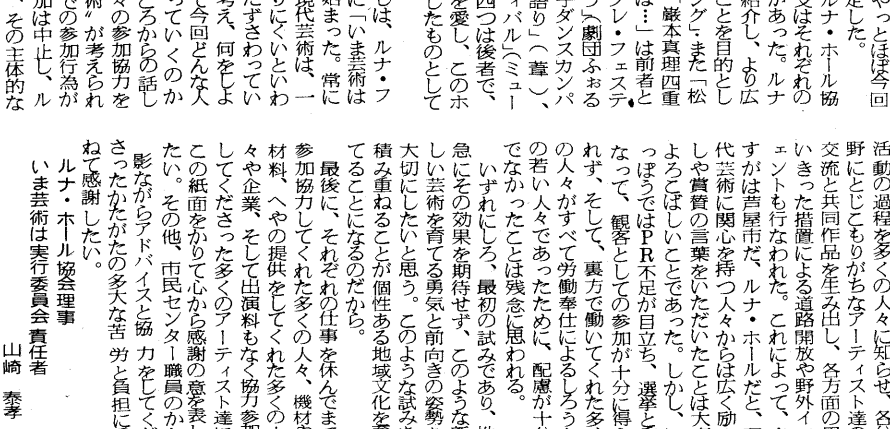 やっとほぼ今回
定した。
ルナ・ホール協
又はそれぞれの
があった。ルナ
紹介し、より広
ことを目的とし
ング」、また「松
「厳本真理四重
は…」は前者と
フレ・フェステ
つ」(劇団ふぉる
子ダンスカンパ
語り」(葦)、
ィバル」(ミュー
四つは後者で、
を愛し、このホ
したものとして
しは、ルナ・フ
に「いま芸術は
始まった。常に
現代芸術は、一
りにくいといわ
たずさわってい
考え、何をしよ
て今回どんな人
っていくのか
ころからの話し
々の参加協力を
術”が考えられ
での参加行為が
加は中止し、ル
、その主体的な
活動の過程を多くの人々に知らせ、各
野にとじこもりがちなアーティスト達の
交流と共同作品を生み出し、各方面の
いきった措置による道路開放や野外イ
ェントも行なわれた。これによって、
すがは芦屋市だ、ルナ・ホールだと、
代芸術に関心を持つ人々からは広く励
しや賞賛の言葉をいただいたことは大
よろこばしいことであった。しかし、
っぽうではPR不足が目立ち、選挙と
なって、観客としての参加が十分に得
れず、そして、裏方で働いてくれた多
の人々がすべて労働奉仕によるしろう
の若い人々であったために、配慮が十
でなかったことは残念に思われる。
いずれにしろ、最初の試みであり、
急にその効果を期待せず、このような
しい芸術を育てる勇気と前向きの姿勢
大切にしたいと思う。このような試み
積み重ねることが個性ある地域文化を
てることになるのだから。
最後に、それぞれの仕事を休んでま
参加協力してくれた多くの人々、機材
材料、へやの提供をしてくれた多くの
々や企業、そして出演料もなく協力参
してくださった多くのアーティスト達
この紙面をかりて心から感謝の意を表
たい。その他、市民センター職員のか
影ながらアドバイスと協力をしてくだ
さったかたがたの多大な苦労と負担に
ねて感謝したい。
ルナ・ホール協会理事
いま芸術は実行委員会責任者
山崎 泰孝